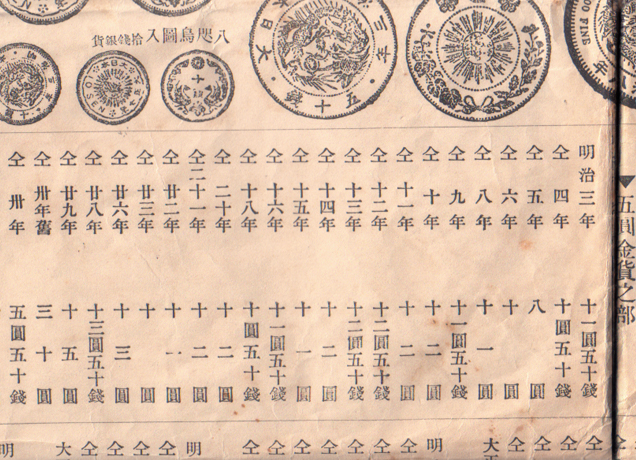 五十錢
八咫鳥圖入拾錢銀貨
▼五圓金貨之部
明治三年 十一圓五十錢
仝四年 十圓五十錢
仝五年 八圓
仝六年 十圓
仝八年 十一圓
仝九年 十一圓五十錢
仝十年 十二圓
仝十一年 十二圓
仝十二年 十二圓五十錢
仝十三年 十二圓五十錢
仝十四年 十二圓
仝十五年 十一圓
仝十六年 十一圓五十錢
仝十八年 十圓五十錢
仝二十年 十二圓
仝二十一年 十二圓
仝廿二年 十一圓
仝廿三年 十圓
仝廿六年 十三圓
仝廿八年 十三圓五十錢
仝廿九年 十五圓
仝卅年舊 三十圓
仝卅年 五圓五十錢
仝
仝
仝
仝
大正
明
仝
仝
仝
仝
仝
仝
仝
明
仝
仝
仝
仝
大
明